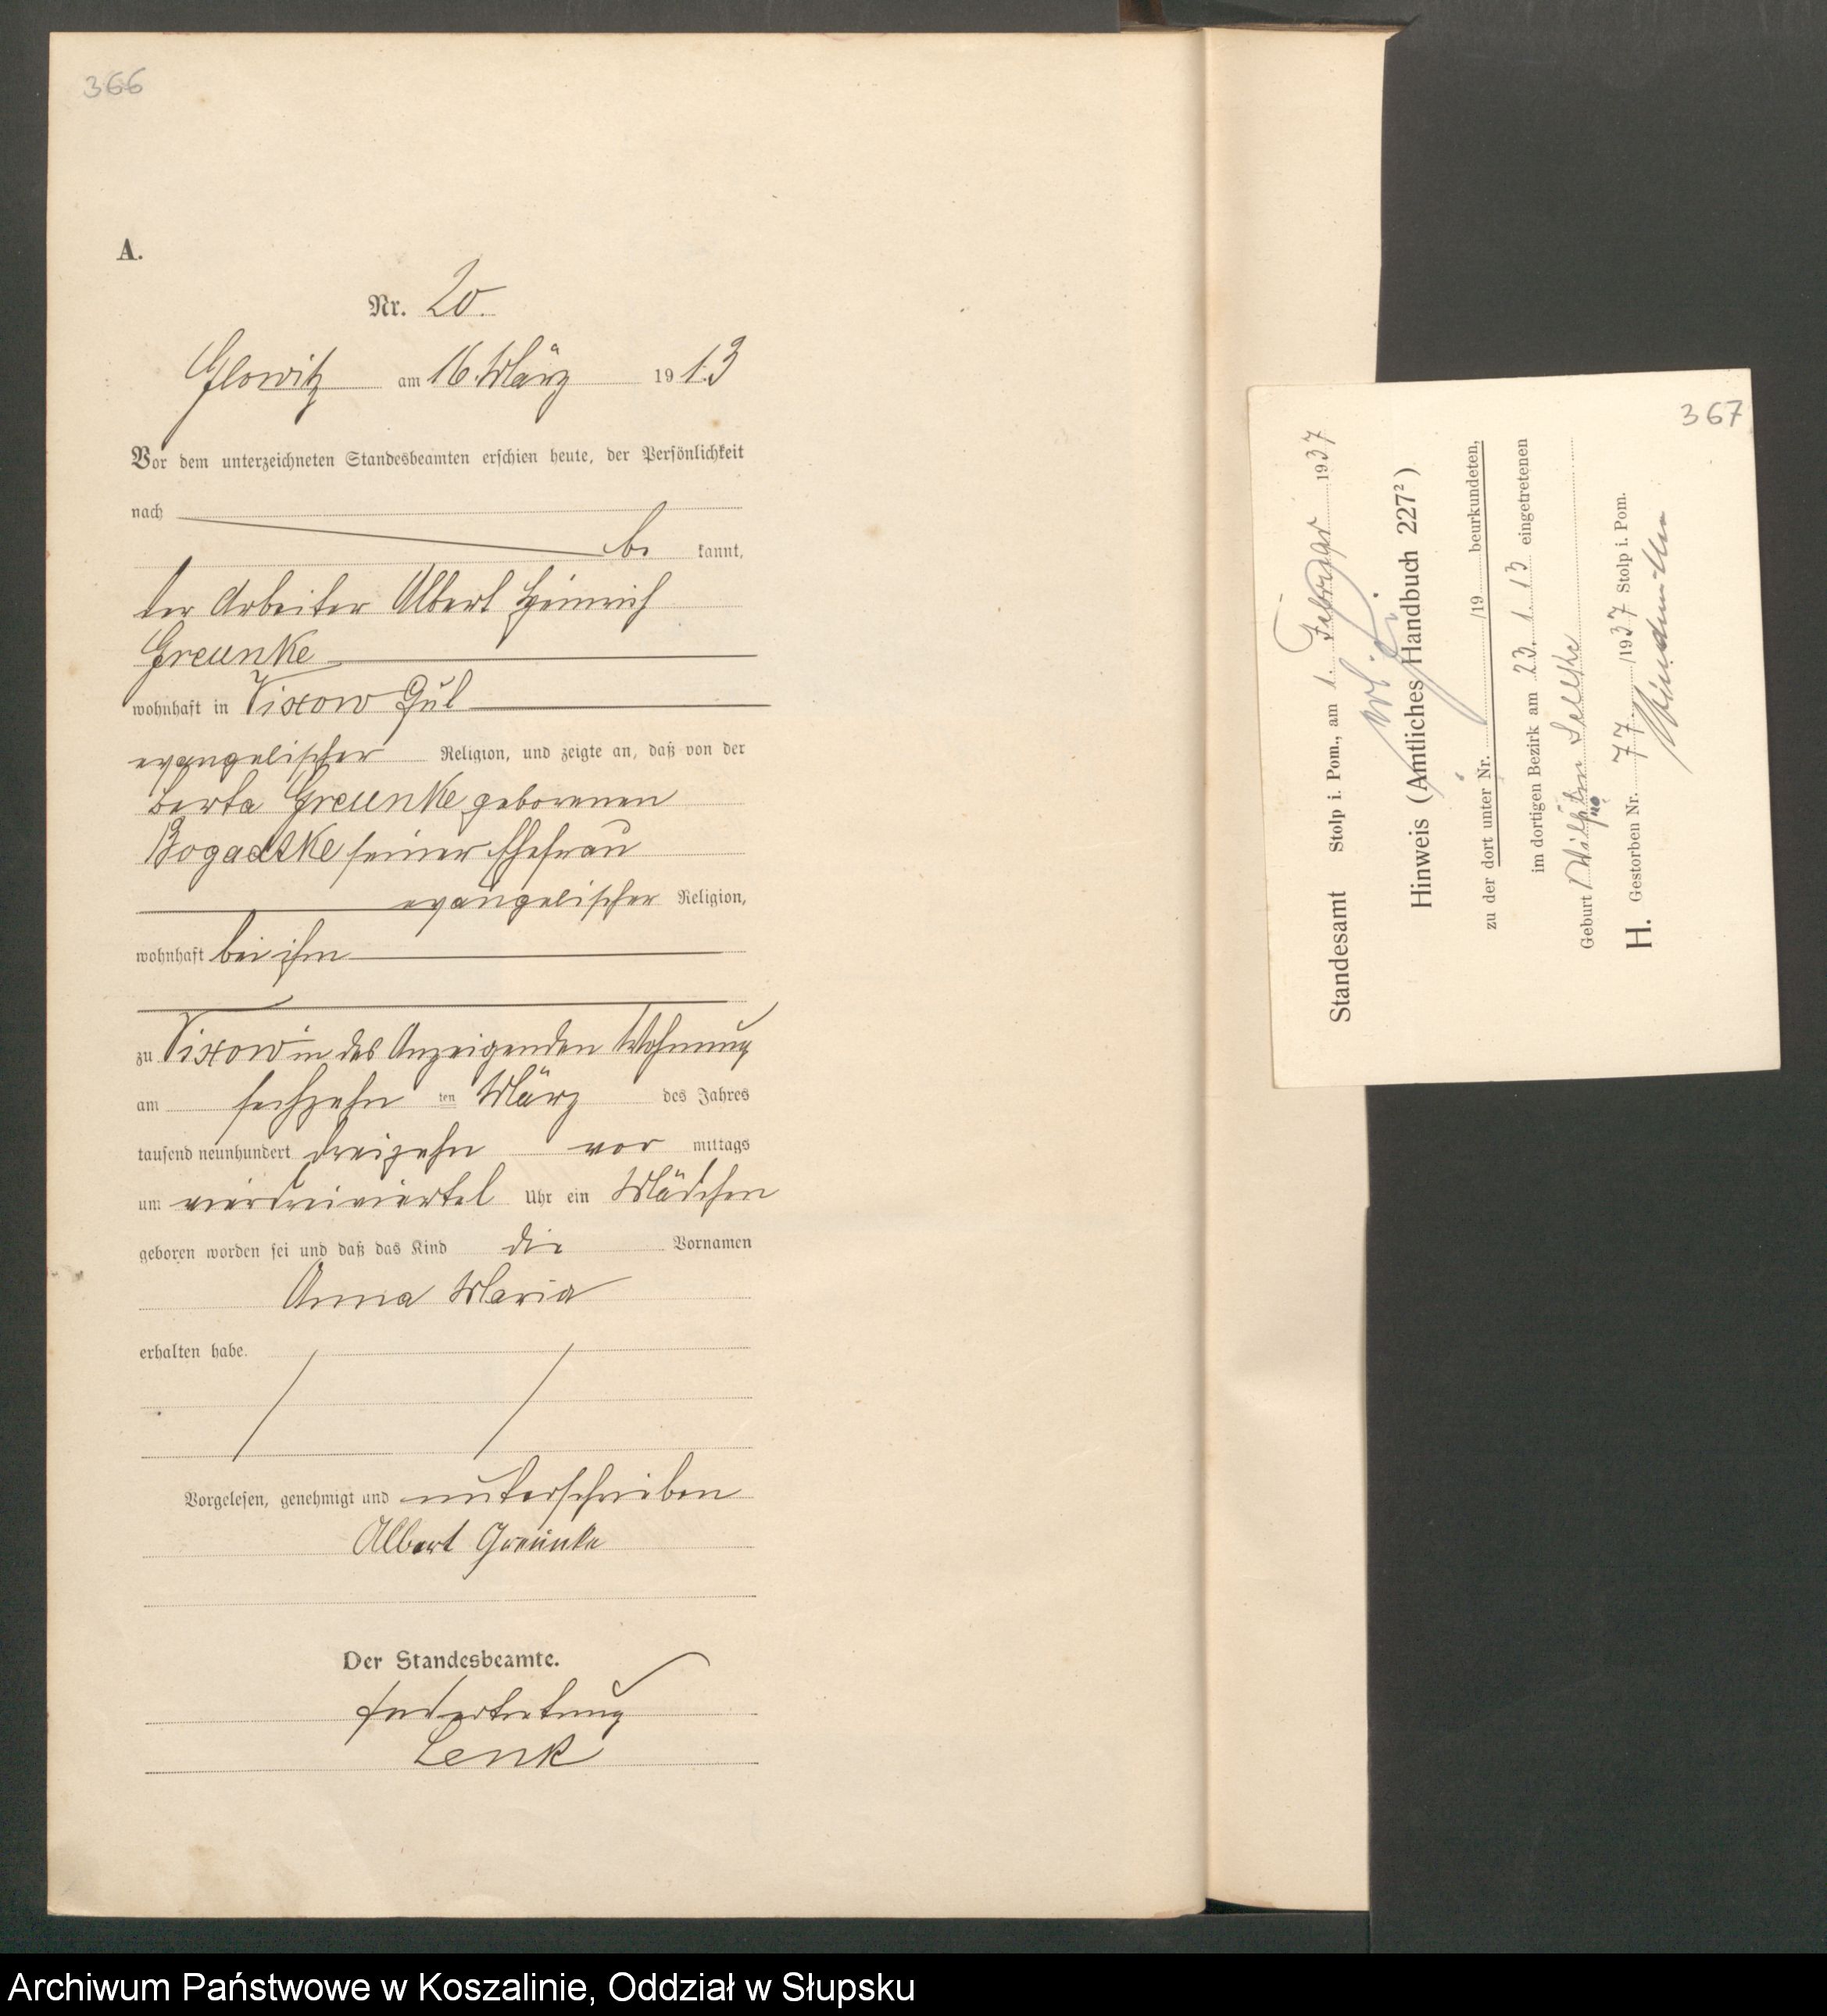 366
A.
Nr. 20.
Glowitz am 16. März 1913
Vor dem unterzeichneten Standesbeamten erschien heute, der Persönlichkeit
nach
be kannt,
der Arbeiter Albert Heinrich
Greunke
wohnhaft in Vixow Gut
evangelischer Religion, und zeigte an, daß von der
Berta Greunke geborenen
Bogatzke seiner Ehefrau
evangelischer Religion,
wohnhaft bei ihm
zu Vixow in des Anzeigenden Wohnung
am sechzehn ten März des Jahres
tausend neunhundert dreizehn vor mittags
um vierdreiviertel Uhr ein Mädchen
geboren worden sei und daß das Kind die Vornamen
Anna Maria
erhalten habe.
Vorgelesen, genehmigt und unterschrieben
Albert Greunke
Der Standesbeamte.
In Vertretung
Lenk
367
Standesamt Stolp i. Pom., am 1. Februar 1937
Hinweis (Amtliches Handbuch 227²)
zu der dort unter Nr. /19 beurkundeten,
im dortigen Bezirk am 23. 1. 13 eingetretenen
Geburt
H. Gestorben Nr. 77 /1937 Stolp i. Pom.
Archiwum Państwowe w Koszalinie, Oddział w Słupsku